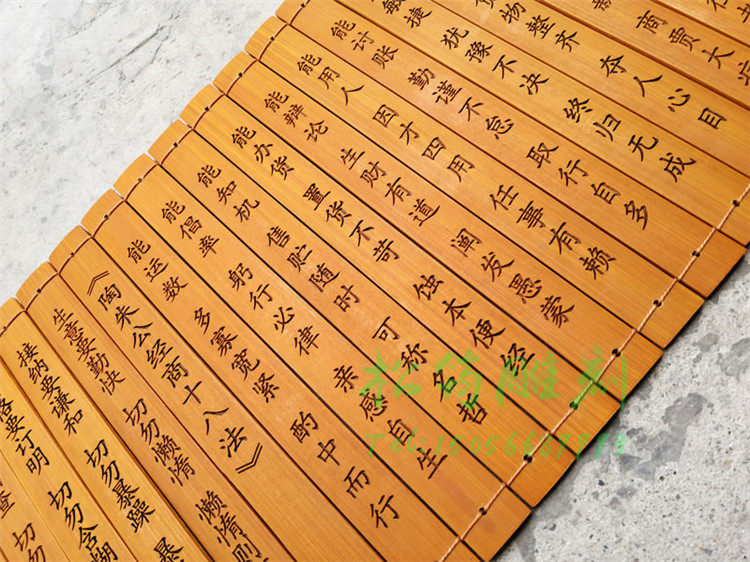 商贾大
货物整齐 夺人心目
敏捷 犹豫不决 终归无成
能讨账 勤谨不怠 取行自多
能用人 因才四用 任事有赖
能辩论 生财有道 阐发愚蒙
能办货 置货不苛 蚀本便经
能知机 售贮随时 可称名哲
能倡率 躬行必律 亲感自生
能运数 多寡宽紧 酌中而行
《陶朱公经商十八法》
生意要勤快 切勿懒惰 懒惰则
接纳要谦和 切勿暴躁 暴
要订明 切勿含糊
切勿
松筠雕刻